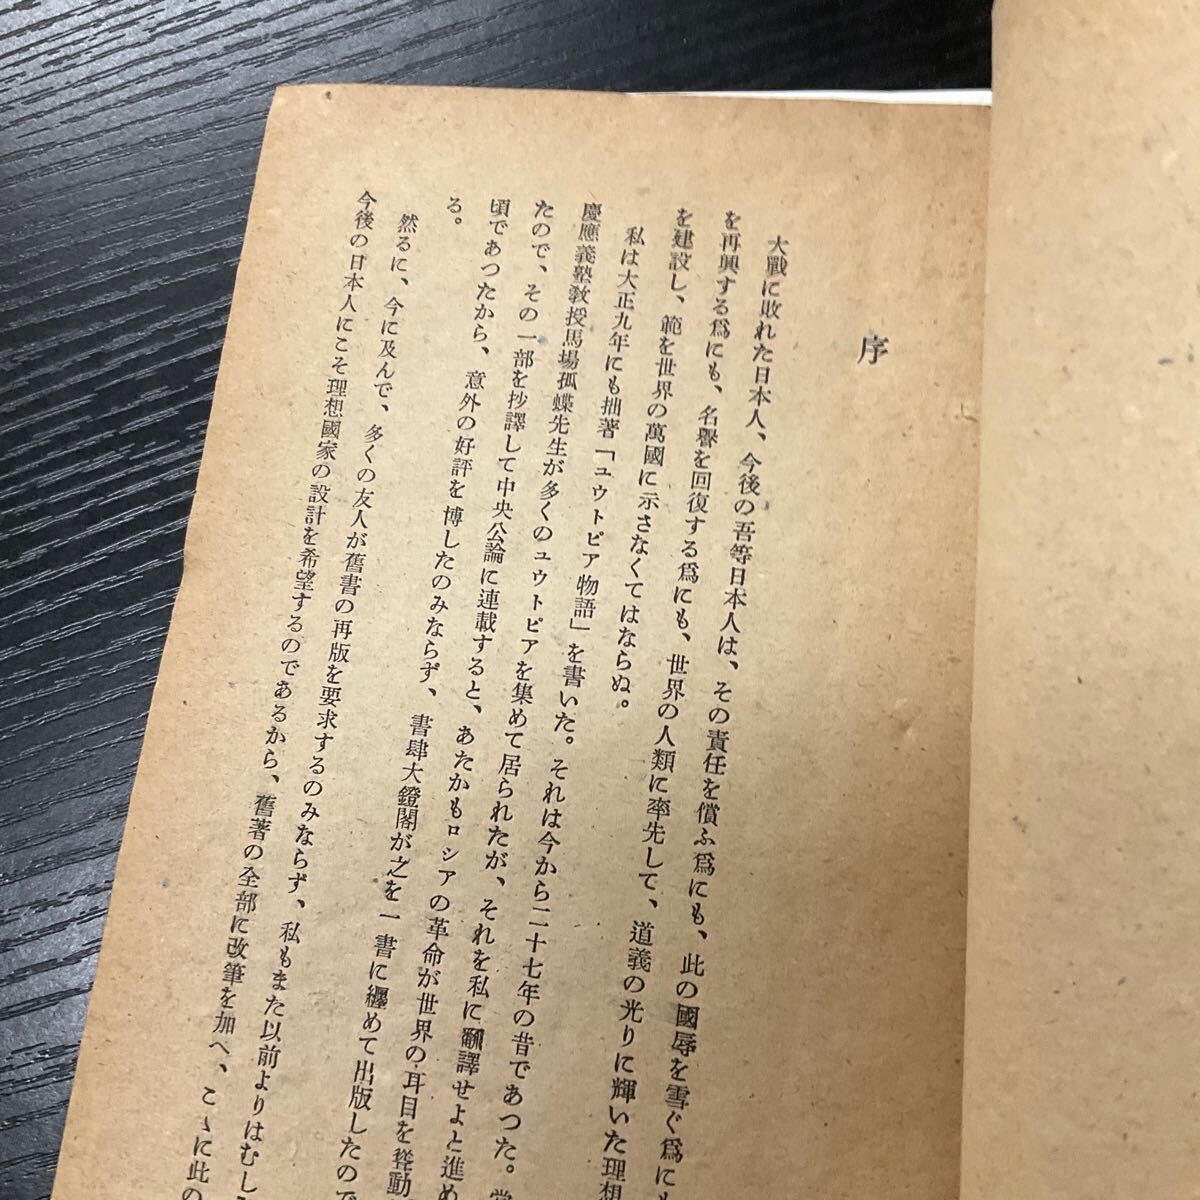 序
大戰に敗れた日本人、今後の吾等日本人は、その責任を償ふ爲にも、此の國辱を雪ぐ爲にも
を再興する爲にも、名譽を回復する爲にも、世界の人類に率先して、道義の光りに輝いた理想
を建設し、範を世界の萬國に示さなくてはならぬ。
私は大正九年にも拙著「ユウトピア物語」を書いた。それは今から二十七年の昔であつた。
慶應義塾敎授馬場孤蝶先生が多くのユウトピアを集めて居られたが、それを私に飜譯せよと進め
たので、その一部を抄譯して中央公論に連載すると、あたかもロシアの革命が世界の耳目を聳動
頃であつたから、意外の好評を博したのみならず、書肆大鐙閣が之を一書に纒めて出版したので
る。
然るに、今に及んで、多くの友人が舊書の再版を要求するのみならず、私もまた以前よりはむし
今後の日本人にこそ理想國家の設計を希望するのであるから、舊著の全部に改筆を加へ、こゝに此の